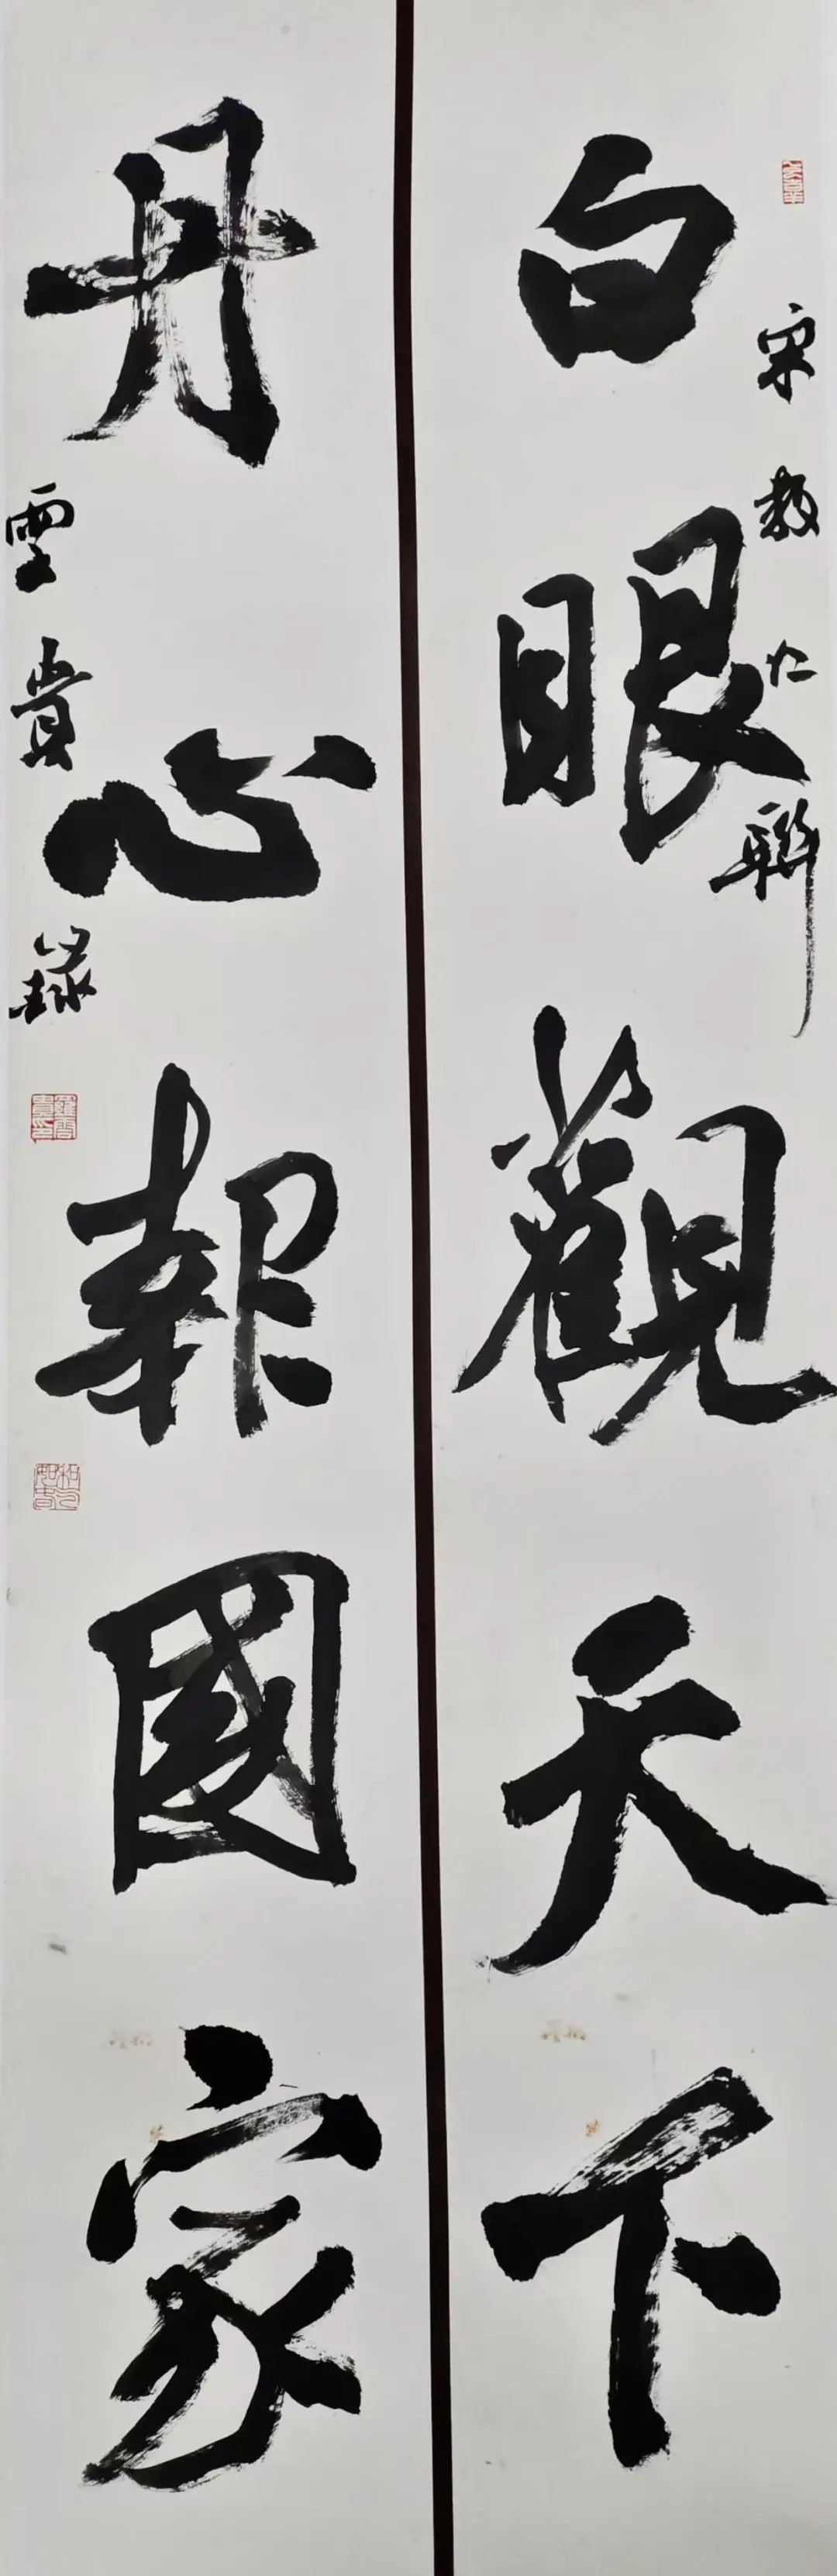 宋教仁聯
白眼觀天下
丹心報國家
雲貴錄